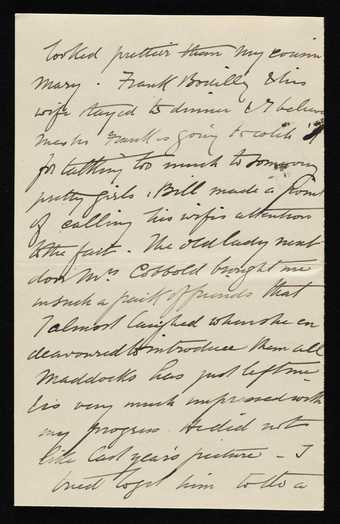 looked prettier than my cousin
Mary. Frank Bodilly & his
wife stayed to dinner & I believe
Master Frank is going to catch it
for talking too much to some very
pretty girls, Bill made a point
of calling his wife's attention
to the fact. The old lady next
door Mrs Cobbold brought me
in such a pack of friends that
I almost laughed when she en
deavoured to introduce them all
Maddocks has just left me
& is very much impressed with
my progress. He did not
like last year's picture - I
tried to get him to do a